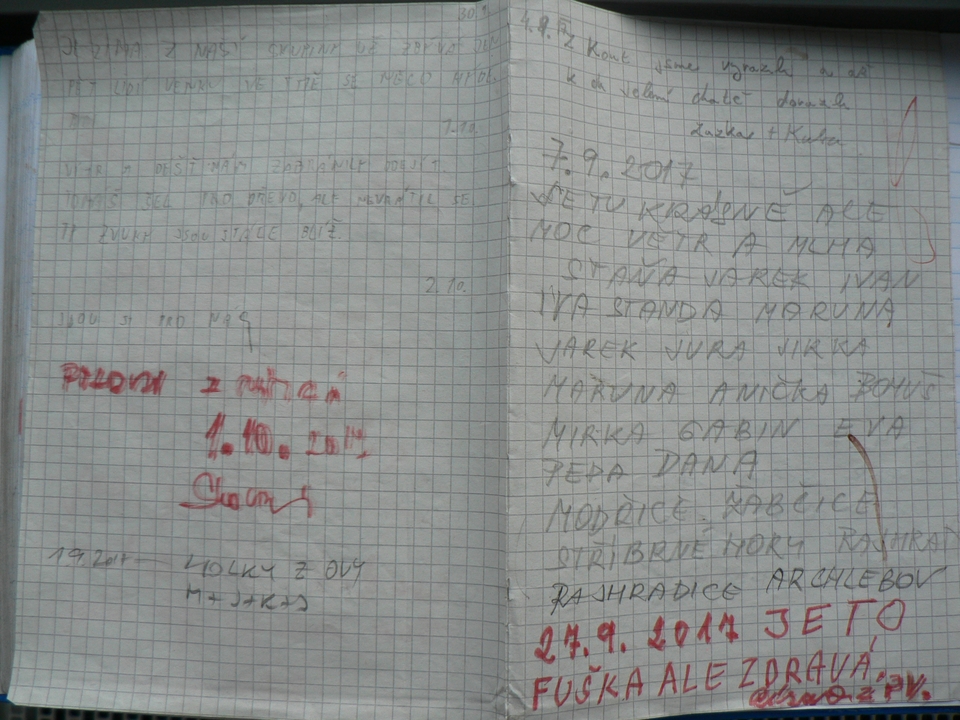 30.9.
JE ZIMA Z NAŠÍ SKUPINY UŽ ZBYLO JEN
PĚT LIDÍ VENKU VE TMĚ SE NĚCO
1.10.
VÍTR A DÉŠŤ NÁM ZABRÁNILY ODEJÍT.
TOMÁŠ ŠEL PRO DŘEVO, ALE NEVRÁTIL SE
TY ZVUKY JSOU STÁLE BLÍŽ.
2.10.
JDOU SI PRO NÁS
Z
1.10. 2017
1.9.2017 HOLKY Z OVY
M+J+K+J
4.9. Z Kout jsme vyrazili a až
k
Zuzka + Kuba
7.9.2017
JE TU KRÁSNĚ ALE
MOC VĚTR A MLHA
STAŇA JAREK IVAN
IVA STANDA MARUNA
JAREK JURA JIRKA
MARUNA ANIČKA BOHUŠ
MIRKA GABIN EVA
PEPA DANA
MODŘICE ŽABČICE
STŘÍBRNÉ HORY RAJHRAD
RAJHRADICE ARCHLEBOV
27.9. 2017 JE TO
FUŠKA ALE ZDRAVÁ.